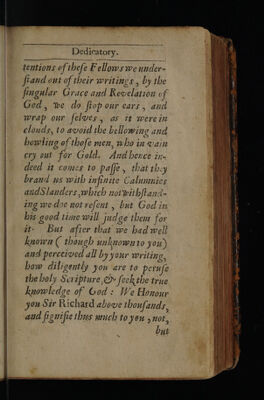 Dedicatory.
tentions of theſe Fellows we under-
ſtand out of their writings, by the
ſingular Grace and Revelation of
God, we do ſtop our ears, and
wrap our ſelves, as it were in
clouds, to avoid the bellowing and
howling of thoſe men, who in vain
cry out for Gold. And hence in-
deed it comes to paſſe, that they
brand us with infinite Calumnies
and Slanders, which notwithſtand-
ing we doe not reſent, but God in
his good time will judge them for
it. But after that we had well
known (though unknown to you)
and perceived all by your writing,
how diligently you are to peruſe
the holy Scripture, & ſeek the true
knowledge of God: We Honour
you Sir Richard above thouſands,
and ſignifie thus much to you, not,
but